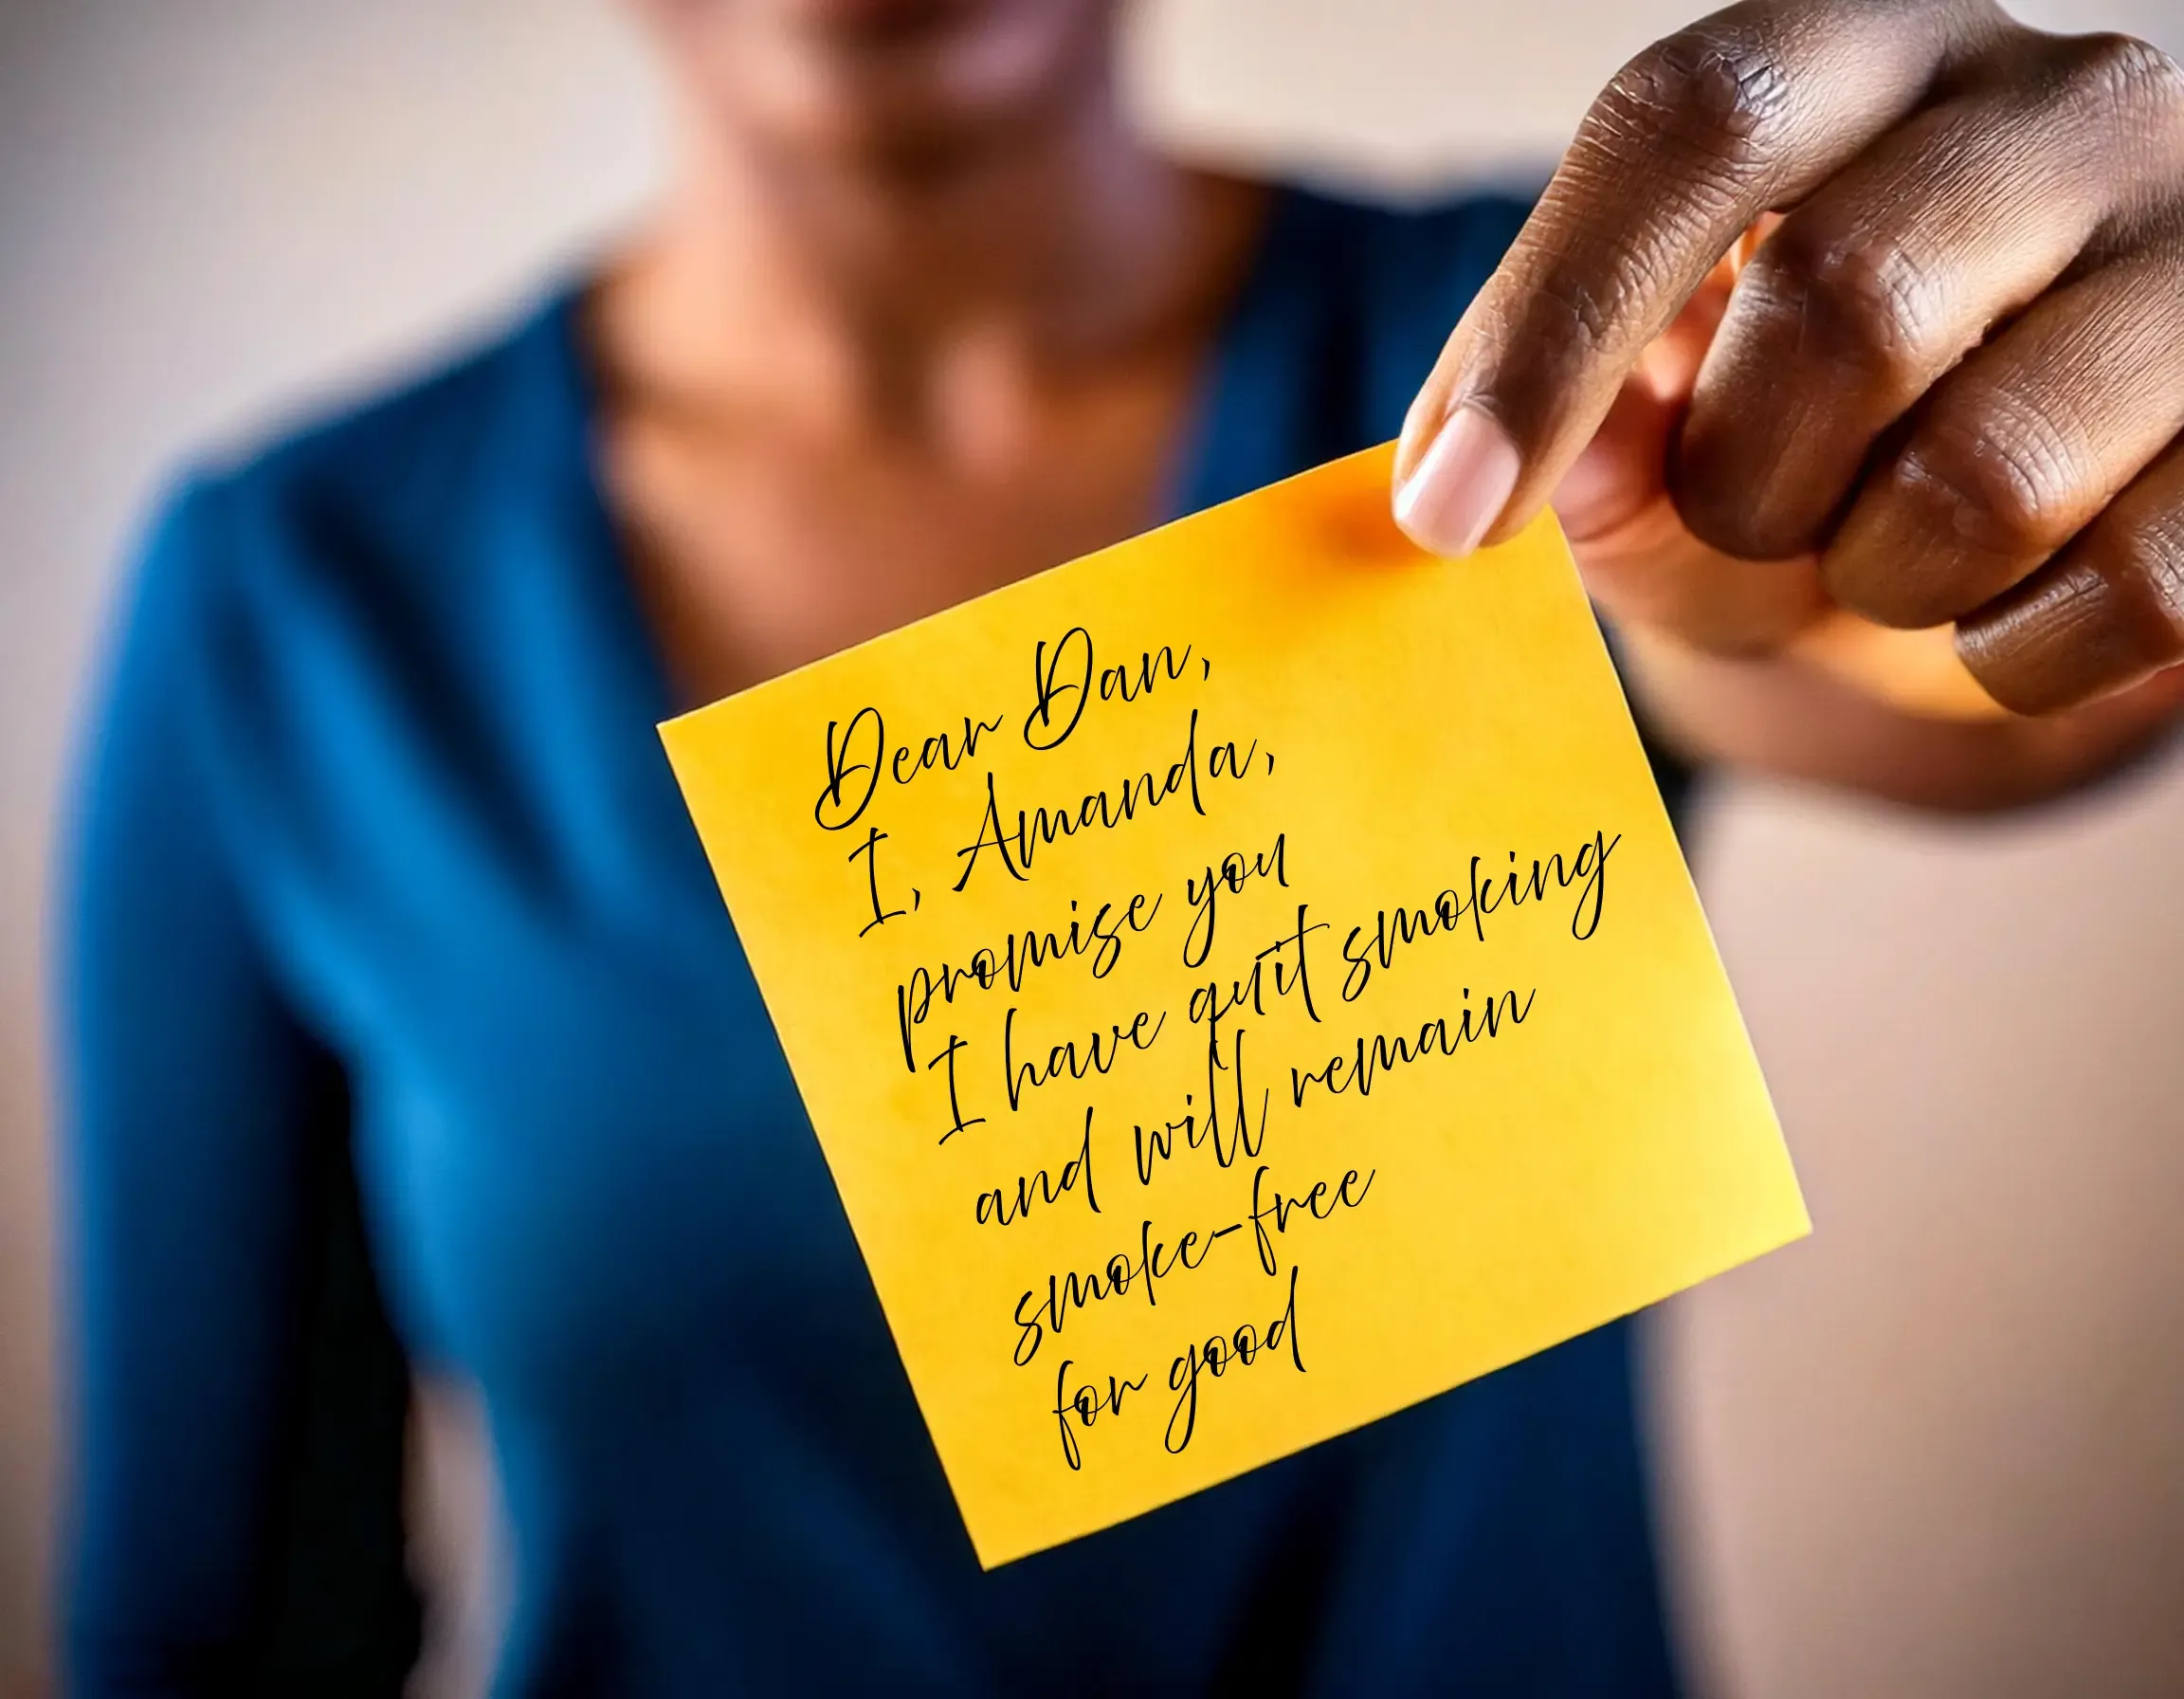 Dear Dan,
I, Amanda,
promise you
I have quit smoking
and will remain
smoke-free
for good